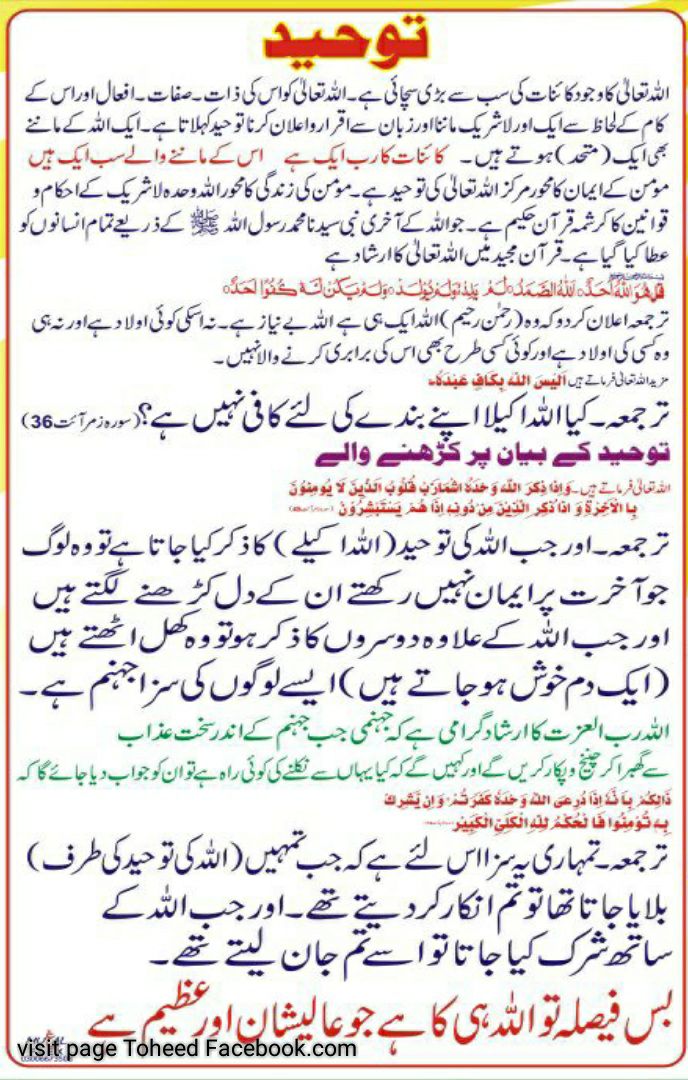 توحید
اللہ تعالیٰ کا وجود کائنات کی سب سے بڑی سچائی ہے۔ اللہ تعالیٰ کو اس کی ذات۔ صفات۔ افعال اور اس کے
کام کے لحاظ سے ایک اور لاشریک ماننا اور زبان سے اقرار و اعلان کرنا توحید کہلاتا ہے۔ ایک اللہ کے ماننے
بھی ایک (متحد) ہوتے ہیں۔ کائنات کا رب ایک ہے اس کے ماننے والے سب ایک ہیں
مؤمن کے ایمان کا محور مرکز اللہ تعالیٰ کی توحید ہے۔ مؤمن کی زندگی کا محور اللہ وحدہ لاشریک کے احکام و
قوانین کا کرشمہ قرآن حکیم ہے۔ جو اللہ کے آخری نبی سیدنا محمد رسول اللہ ﷺ کے ذریعے تمام انسانوں کو
عطا کیا گیا ہے۔ قرآن مجید میں اللہ تعالیٰ کا ارشاد ہے
قل هو اللہ احد، اللہ الصمد، لم یلد ولم یولد، ولم یکن له کفوا احد
ترجمعہ اعلان کر دو کہ وہ (رحمٰن رحیم) اللہ ایک ہی ہے اللہ بے نیاز ہے۔ نہ اسکی کوئی اولاد ہے اور نہ ہی
وہ کسی کی اولاد ہے اور کوئی کسی طرح بھی اس کی برابری کرنے والا نہیں۔
مزید اللہ تعالیٰ فرماتے ہیں الیس اللہ بکاف عبدہ
ترجمعہ۔ کیا اللہ اکیلا اپنے بندے کی لئے کافی نہیں ہے؟ (سورہ زمر آئت 36)
توحید کے بیان پر کڑھنے والے
اللہ تعالیٰ فرماتے ہیں۔ واذا ذکر اللہ وحدہ اشمازت قلوب الذین لا یومنون
با الاخرة و اذا ذکر الذین من دونه اذا هم یستبشرون
ترجمعہ۔ اور جب اللہ کی توحید (اللہ اکیلے) کا ذکر کیا جاتا ہے تو وہ لوگ
جو آخرت پر ایمان نہیں رکھتے ان کے دل کڑھنے لگتے ہیں
اور جب اللہ کے علاوہ دوسروں کا ذکر ہو تو وہ کھل اٹھتے ہیں
(ایک دم خوش ہو جاتے ہیں) ایسے لوگوں کی سزا جہنم ہے۔
اللہ رب العزت کا ارشاد گرامی ہے کہ جہنمی جب جہنم کے اندر سخت عذاب
سے گھبرا کر چیخ و پکار کریں گے اور کہیں گے کہ کیا یہاں سے نکلنے کی کوئی راہ ہے تو ان کو جواب دیا جائے گا کہ
ذالکم بانه اذا دعی اللہ وحدہ کفرتم وان یشرک
به تومنوا فا لحکم للہ العلی الکبیر
ترجمعہ۔ تمہاری یہ سزا اس لئے ہے کہ جب تمہیں (اللہ کی توحید کی طرف)
بلایا جاتا تھا تو تم انکار کر دیتے تھے۔ اور جب اللہ کے
ساتھ شرک کیا جاتا تو اسے تم جان لیتے تھے۔
بس فیصلہ تو اللہ ہی کا ہے جو عالیشان اور عظیم ہے
visit page Toheed Facebook.com